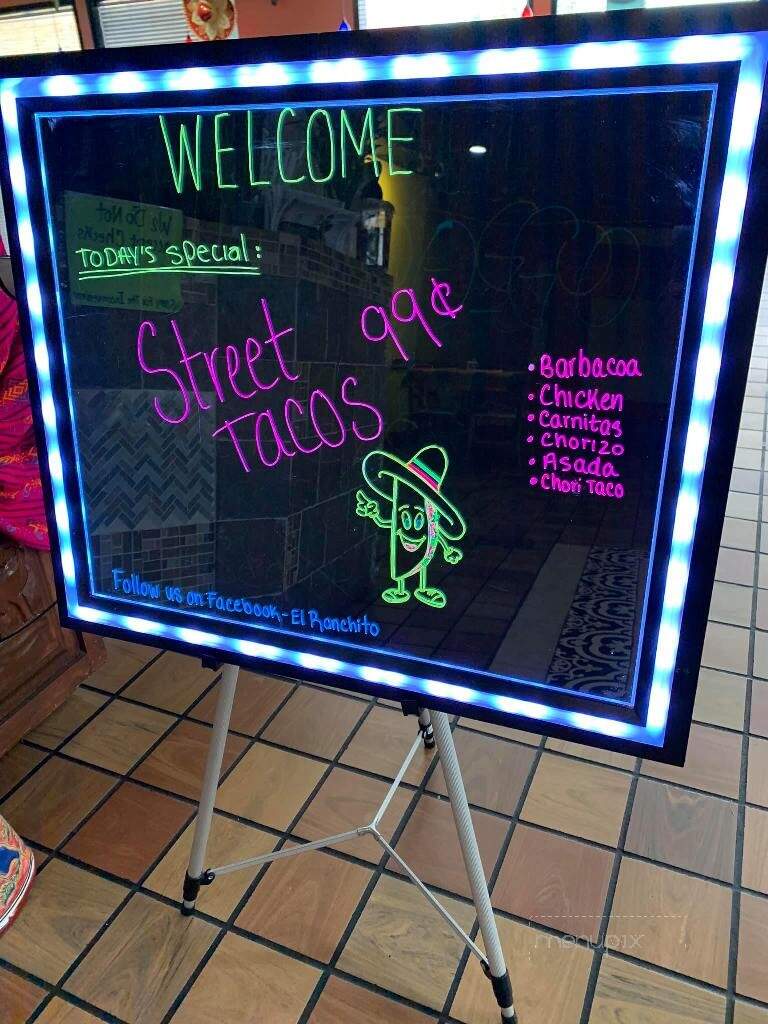 WELCOME
TODAY'S Special:
Street 99¢
TACOS
• Barbacoa
• Chicken
• Carnitas
• Chorizo
• Asada
• Chori Taco
Follow us on Facebook - El Ranchito
We Do Not
Checks
For The Inconvenience
menupix